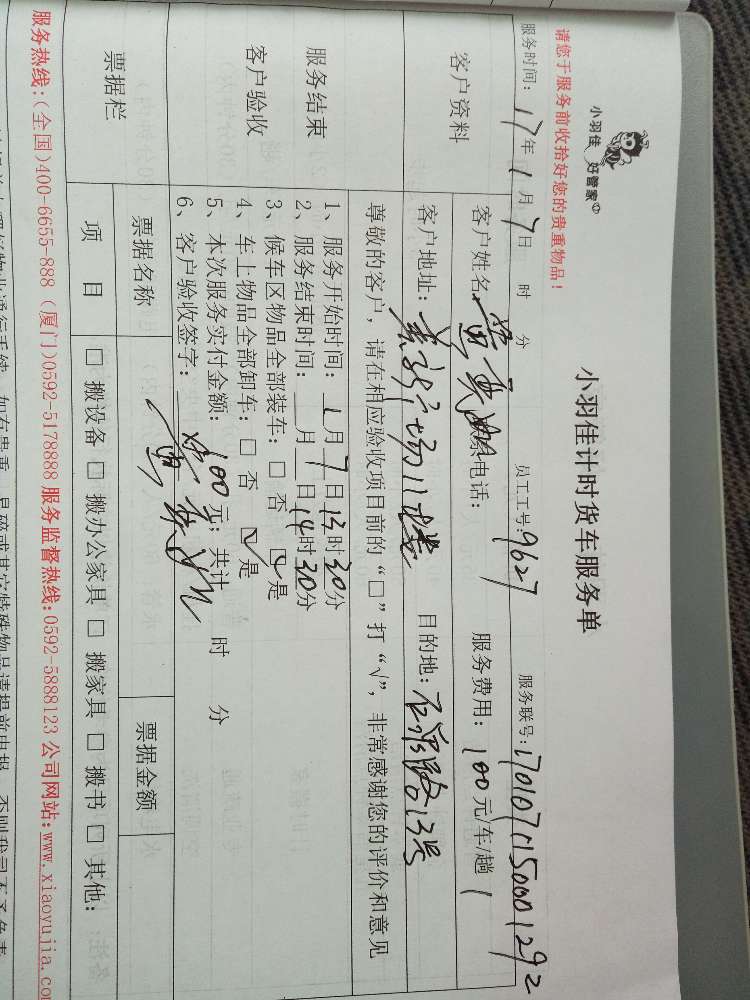 小羽佳 好管家
小羽佳计时货车服务单
请您于服务前收拾好您的贵重物品！
服务时间：17年1月7日 时 分 员工工号：9627 服务联号：1701070150001292
客户资料
客户姓名 电话： 服务费用：100元/车/趟
客户地址： 目的地： 13号
尊敬的客户，请在相应验收项目前的“□”打“√”，非常感谢您的评价和意见
服务结束
客户验收
1、服务开始时间：1月7日13时30分
2、服务结束时间： 月 日14时30分
3、候车区物品全部装车：□ 否 ☑是
4、车上物品全部卸车：□ 否 ☑是
5、本次服务实付金额：100元；共计 时 分
6、客户验收签字：
票据栏
票据名称 票据金额
项 目 □ 搬设备 □ 搬办公家具 □ 搬家具 □ 搬书 □ 其他：
服务热线：(全国)400-6655-888 (厦门)0592-5178888 服务监督热线：0592-5888123 公司网站：www.xiaoyujia.co